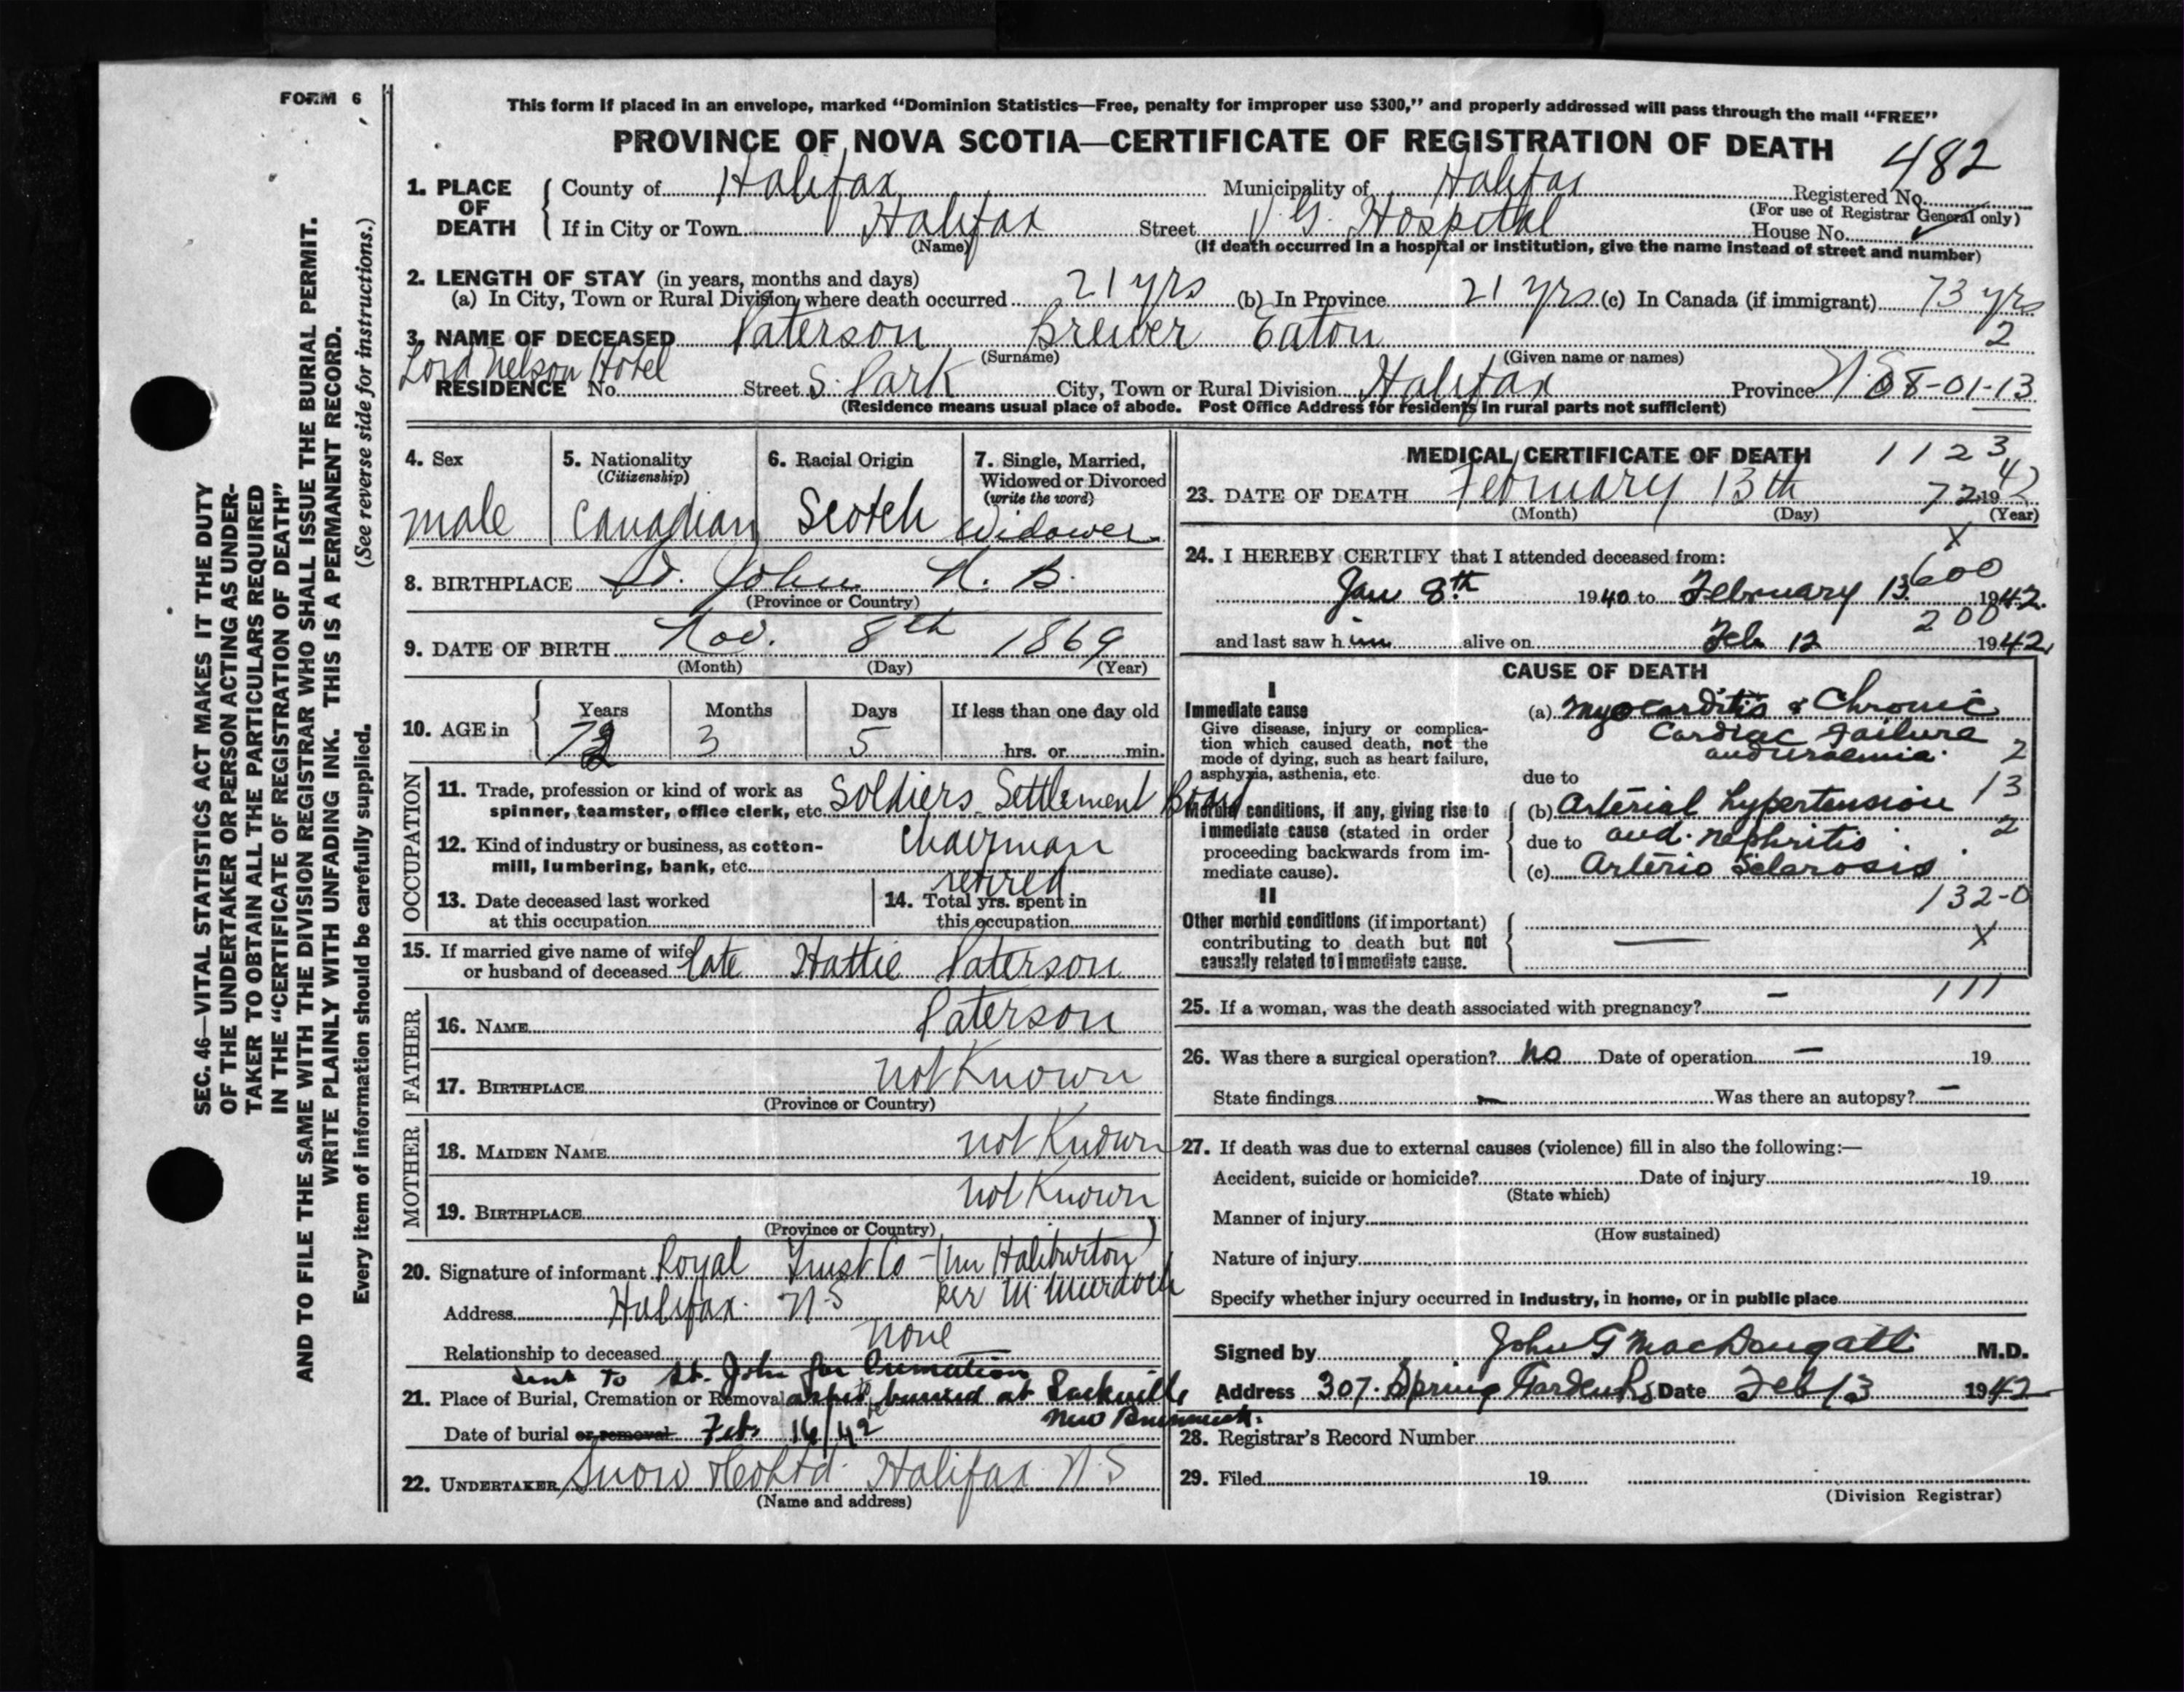 FORM 6
This form if placed in an envelope, marked “Dominion Statistics—Free, penalty for improper use $300,” and properly addressed will pass through the mail “FREE”
PROVINCE OF NOVA SCOTIA—CERTIFICATE OF REGISTRATION OF DEATH
482
1. PLACE OF DEATH
County of Halifax Municipality of Halifax Registered No.
(For use of Registrar General only)
If in City or Town Halifax Street V. G. Hospital House No.
(Name) (If death occurred in a hospital or institution, give the name instead of street and number)
2. LENGTH OF STAY (in years, months and days)
(a) In City, Town or Rural Division where death occurred 21 yrs (b) In Province 21 yrs (c) In Canada (if immigrant) 73 yrs
3. NAME OF DECEASED Paterson Brewer Eaton 2
(Surname) (Given name or names)
Lord Nelson Hotel
RESIDENCE No. Street S. Park City, Town or Rural Division Halifax Province N.S 08-01-13
(Residence means usual place of abode. Post Office Address for residents in rural parts not sufficient)
4. Sex
male
5. Nationality
(Citizenship)
Canadian
6. Racial Origin
Scotch
7. Single, Married,
Widowed or Divorced
(write the word)
Widower
8. BIRTHPLACE St. John N. B.
(Province or Country)
9. DATE OF BIRTH Nov. 8th 1869
(Month) (Day) (Year)
10. AGE in
Years Months Days If less than one day old
72 3 5 hrs. or min.
OCCUPATION
11. Trade, profession or kind of work as
spinner, teamster, office clerk, etc. Soldiers Settlement Board
12. Kind of industry or business, as cotton-
mill, lumbering, bank, etc. Chairman
retired
13. Date deceased last worked
at this occupation
14. Total yrs. spent in
this occupation
15. If married give name of wife
or husband of deceased late Hattie Paterson
FATHER
16. NAME Paterson
17. BIRTHPLACE not Known
(Province or Country)
MOTHER
18. MAIDEN NAME not Known
19. BIRTHPLACE not Known
(Province or Country)
20. Signature of informant Royal Trust Co - (Mr Haliburton)
per M. Murdoch
Address Halifax. N.S
Relationship to deceased none
sent to St. John for Cremation
21. Place of Burial, Cremation or Removal ashes to be buried at Sackville
New Brunswick.
Date of burial or removal Feb 16/42
22. UNDERTAKER Snow & Co Ltd. Halifax N.S
(Name and address)
MEDICAL CERTIFICATE OF DEATH 1123
23. DATE OF DEATH February 13th 72 1942
(Month) (Day) (Year)
X
24. I HEREBY CERTIFY that I attended deceased from:
600
Jan 8th 1940 to February 13 1942.
200
and last saw him alive on Feb 12 1942
CAUSE OF DEATH
I
Immediate cause
Give disease, injury or complica-
tion which caused death, not the
mode of dying, such as heart failure,
asphyxia, asthenia, etc.
(a) Myocarditis & Chronic
Cardiac Failure
and uraemia. 2
due to
Morbid conditions, if any, giving rise to
immediate cause (stated in order
proceeding backwards from im-
mediate cause).
(b) Arterial hypertension 13
due to and nephritis 2
(c) Arterio Sclerosis
132-0
II
Other morbid conditions (if important)
contributing to death but not
causally related to immediate cause.
X
25. If a woman, was the death associated with pregnancy? - 111
26. Was there a surgical operation? No Date of operation - 19
State findings - Was there an autopsy? -
27. If death was due to external causes (violence) fill in also the following:—
Accident, suicide or homicide? Date of injury 19
(State which)
Manner of injury
(How sustained)
Nature of injury
Specify whether injury occurred in industry, in home, or in public place
Signed by John G MacDougall M.D.
Address 307. Spring Garden Rd Date Feb 13 1942
28. Registrar's Record Number
29. Filed 19
(Division Registrar)
SEC. 46—VITAL STATISTICS ACT MAKES IT THE DUTY
OF THE UNDERTAKER OR PERSON ACTING AS UNDER-
TAKER TO OBTAIN ALL THE PARTICULARS REQUIRED
IN THE “CERTIFICATE OF REGISTRATION OF DEATH”
AND TO FILE THE SAME WITH THE DIVISION REGISTRAR WHO SHALL ISSUE THE BURIAL PERMIT.
WRITE PLAINLY WITH UNFADING INK. THIS IS A PERMANENT RECORD.
Every item of information should be carefully supplied. (See reverse side for instructions.)